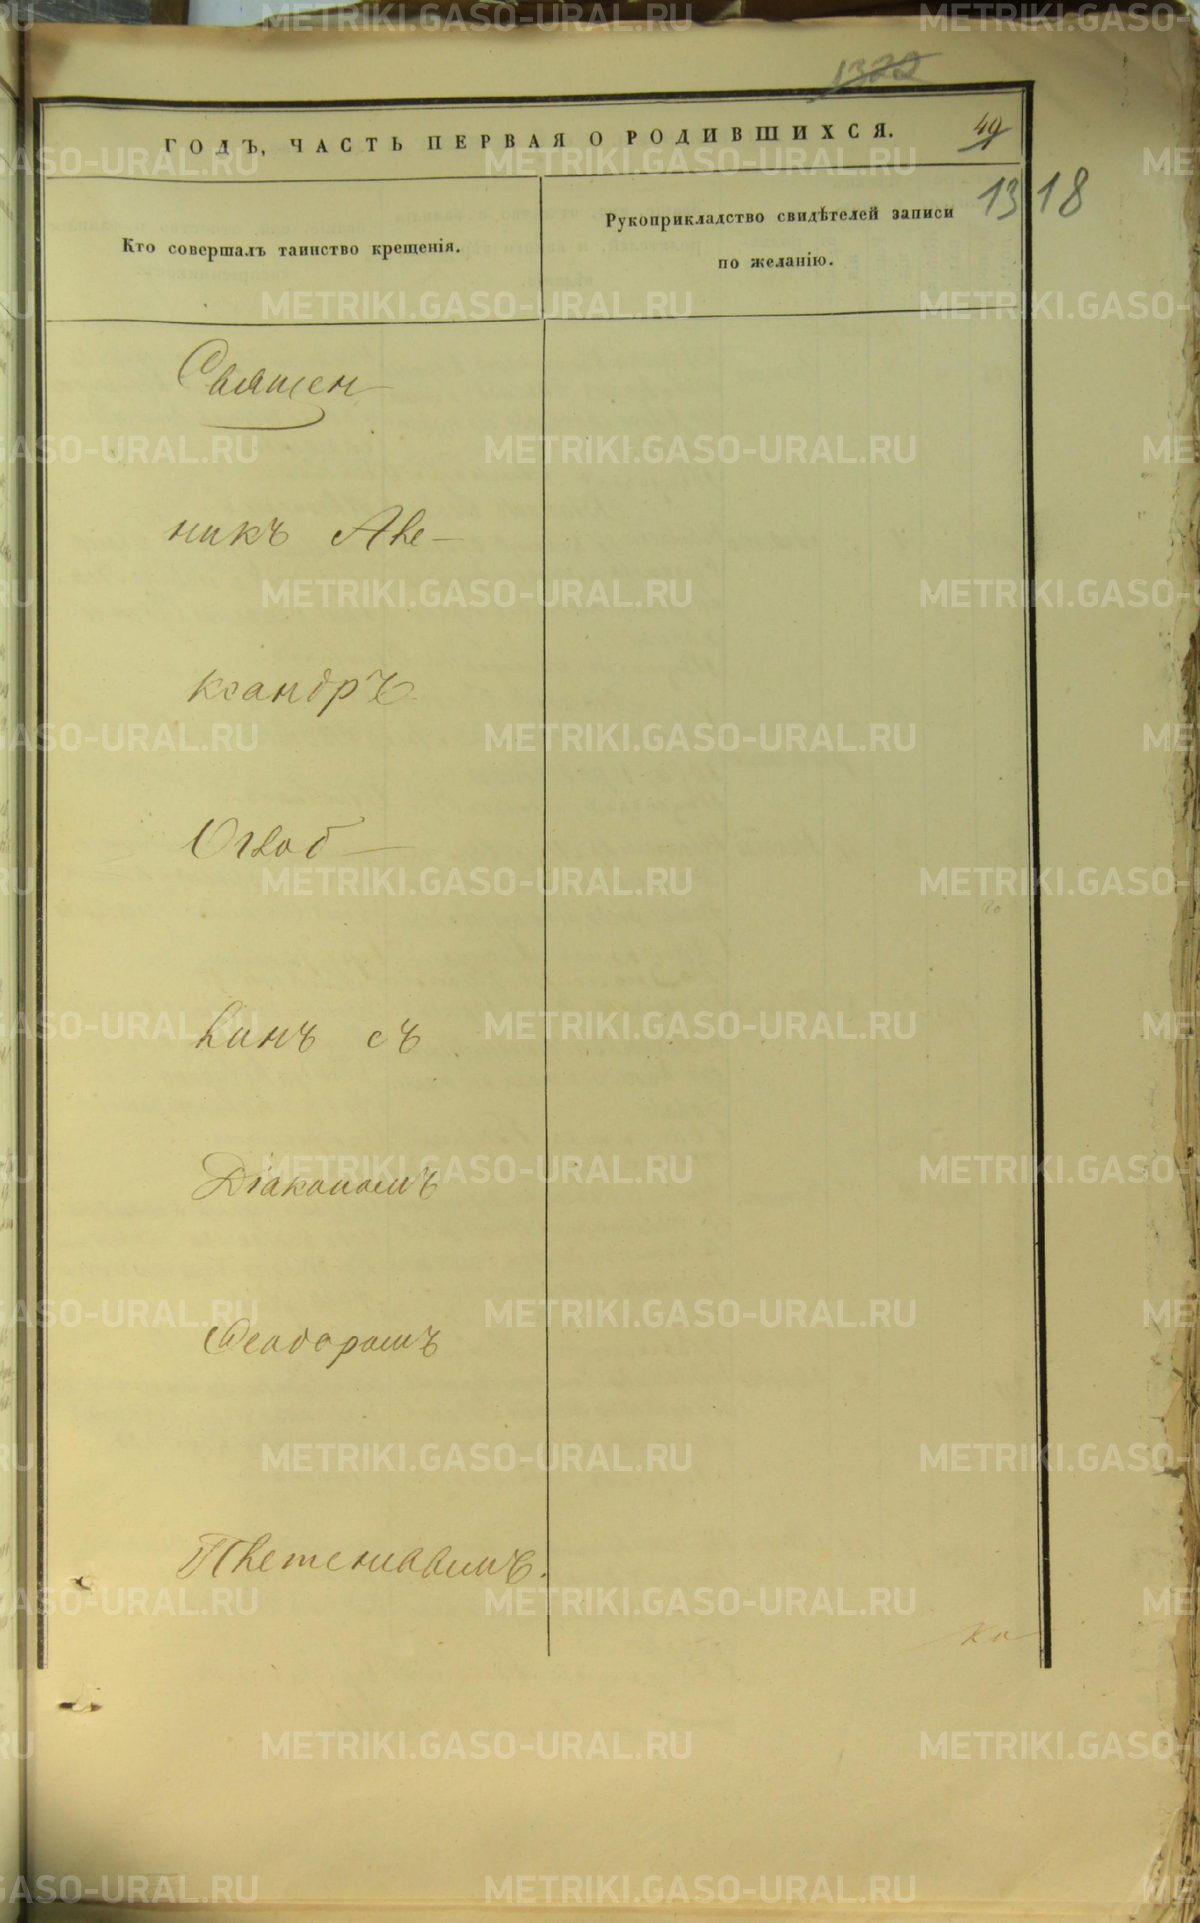 1322
ГОДЪ, ЧАСТЬ ПЕРВАЯ О РОДИВШИХСЯ.
49
1318
Кто совершалъ таинство крещенія.
Рукоприкладство свидѣтелей записи
по желанію.
Священ-
никъ Але-
ксандръ
Оглоб-
линъ съ
Діакономъ
Ѳеодоромъ
Ко
METRIKI.GASO-URAL.RU